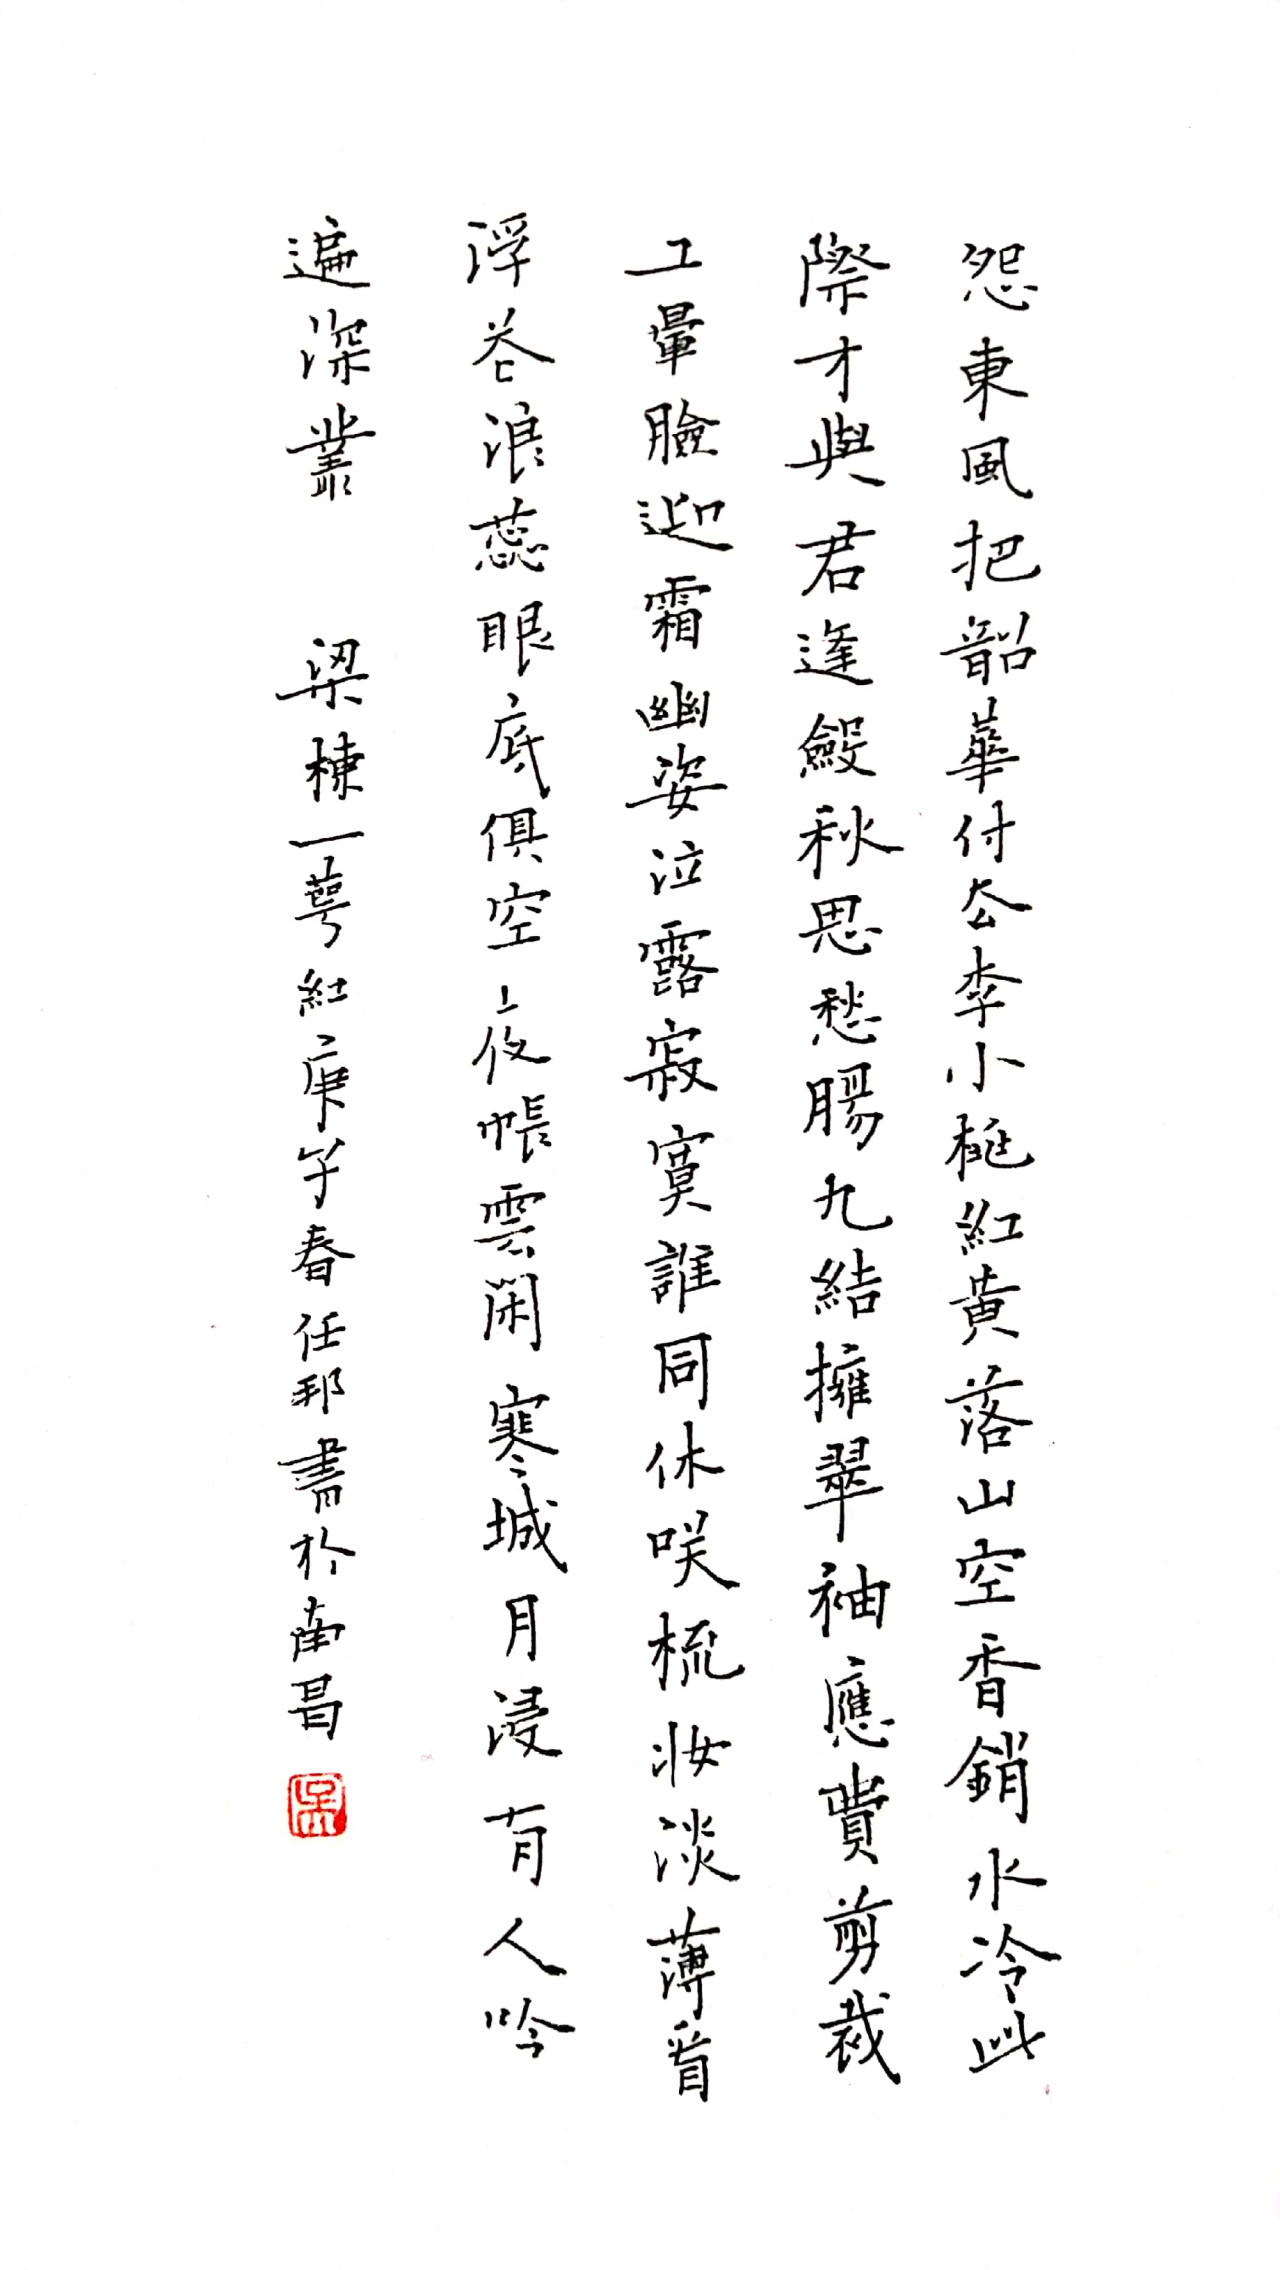 怨東風把韶華付去李小桃紅黄落山空香銷水冷此
際才與君逢斂秋思愁腸九結擁翠袖應費剪裁
工暈臉迎霜幽姿泣露寂寞誰同休咲梳妝淡薄看
浮花浪蕊眼底俱空夜帳雲閑寒城月浸有人吟
遍深叢 梁棟一萼紅庚子春任邦書於南昌